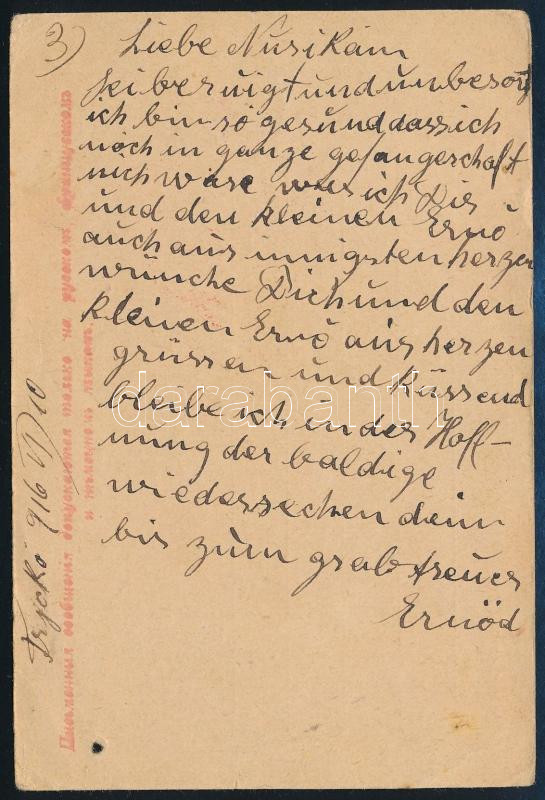 3)
Liebe Nusikám
sei beruigt und unbesorg
ich bin so gesund dass ich
noch in ganze gefangeschaft
nich ware was ich Dir
und den kleinen Ernö
auch aus innigsten herzen
wünche Dich und den
kleinen Ernö aus herzen
grüssen und Küssend
bleibe ich in der Hoff-
nung der baldige
wiedersechen dein
bis zum grab treuer
Ernöd
916 VI/10
Письменныя сообщенія допускаются только на русскомъ, французскомъ
и нѣмецкомъ языкахъ.
darabanth